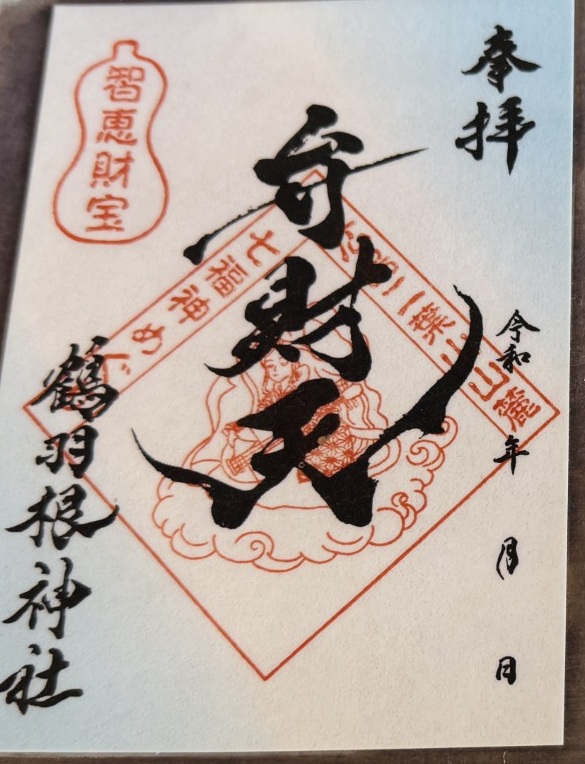 奉拝
令和 年 月 日
弁財天
智恵財宝
二葉 山麓
七福神めぐ
鶴羽根神社